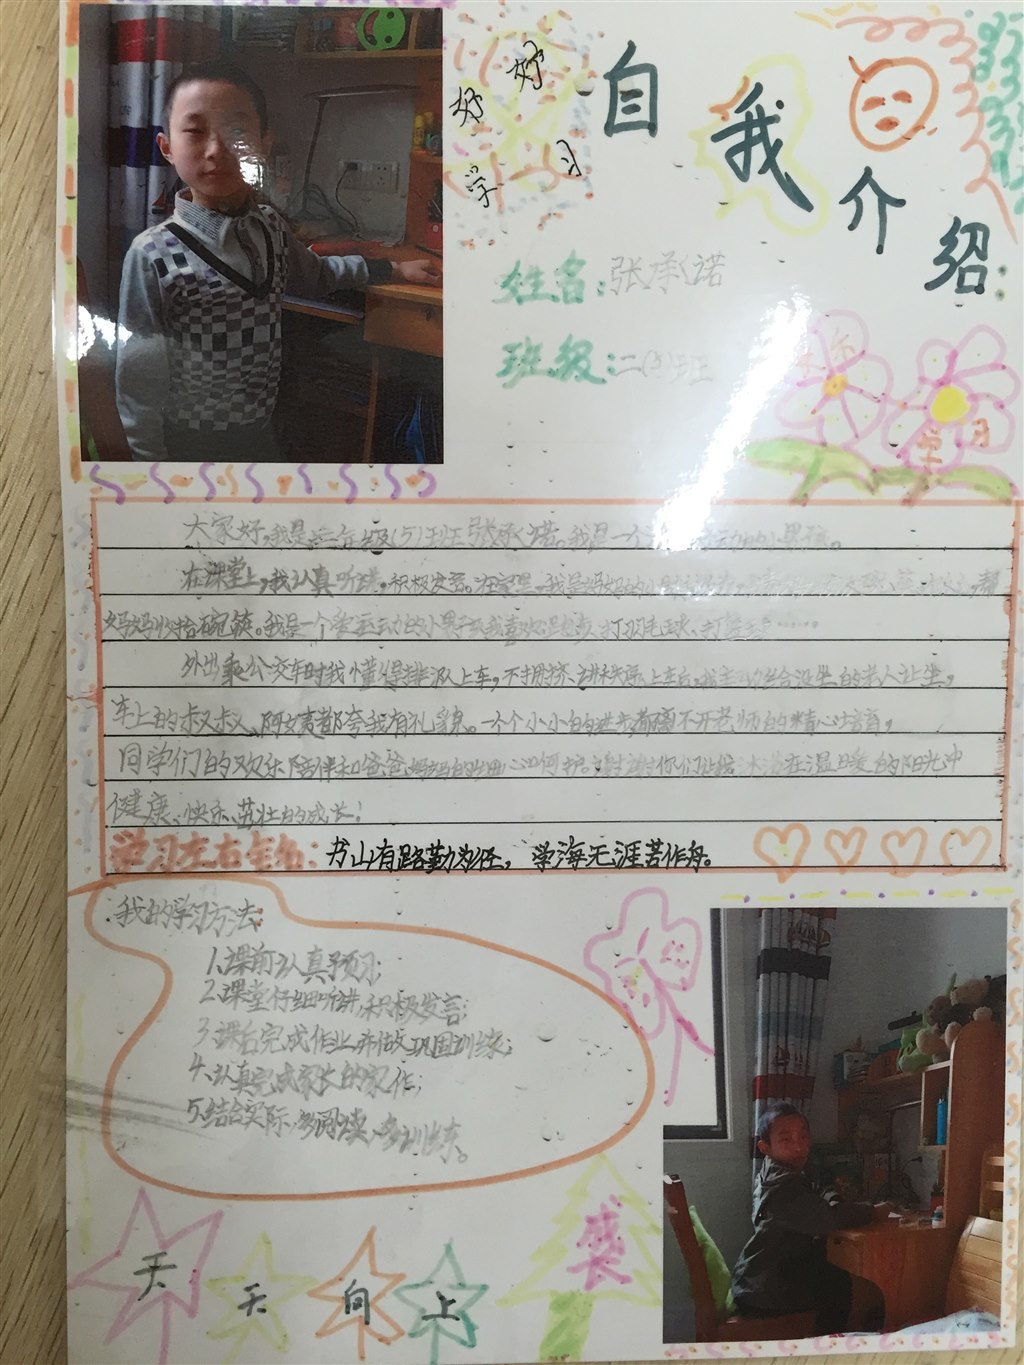 好好
学习
自我介绍:
姓名:张承诺
班级:二(5)班
快乐
学习
大家好,我是二年级(5)班张承诺。我是一个
在课堂上,我认真听讲,积极发言。在家里,我是妈妈的小
妈妈收拾碗筷。我是一个爱运动的小男子汉我喜欢跑步、打羽毛球、打篮球……
外出乘公交车时我懂得排队上车,不拥挤、讲秩序上车后,我主动给没坐的老人让坐,
车上的叔叔、阿姨都夸我有礼貌。一个个小小的进步都离不开老师的精心培育,
同学们的欢乐陪伴和爸爸妈妈的细心呵护。谢谢你们让我沐浴在温暖的阳光中
健康、快乐、茁壮的成长!
学习左右铭:书山有路勤为径,学海无涯苦作舟。
我的学习方法:
1、课前认真预习;
2、课堂仔细听讲,积极发言;
3、课后完成作业,并做巩固训练;
4、认真完成家长的家作;
5、结合实际,多阅读、多训练。
天天向上